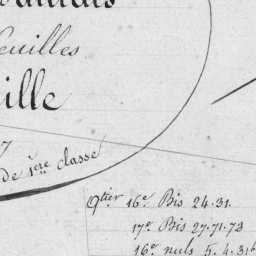 feuilles
ille
de 1ère classe
9tier 16e Bis 24.31.
17e Bis 27.71.73
16e nuls 5.4.31